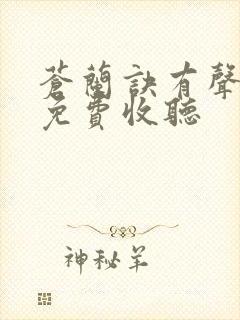 蒼蘭訣有聲
免費收聽
神秘羊